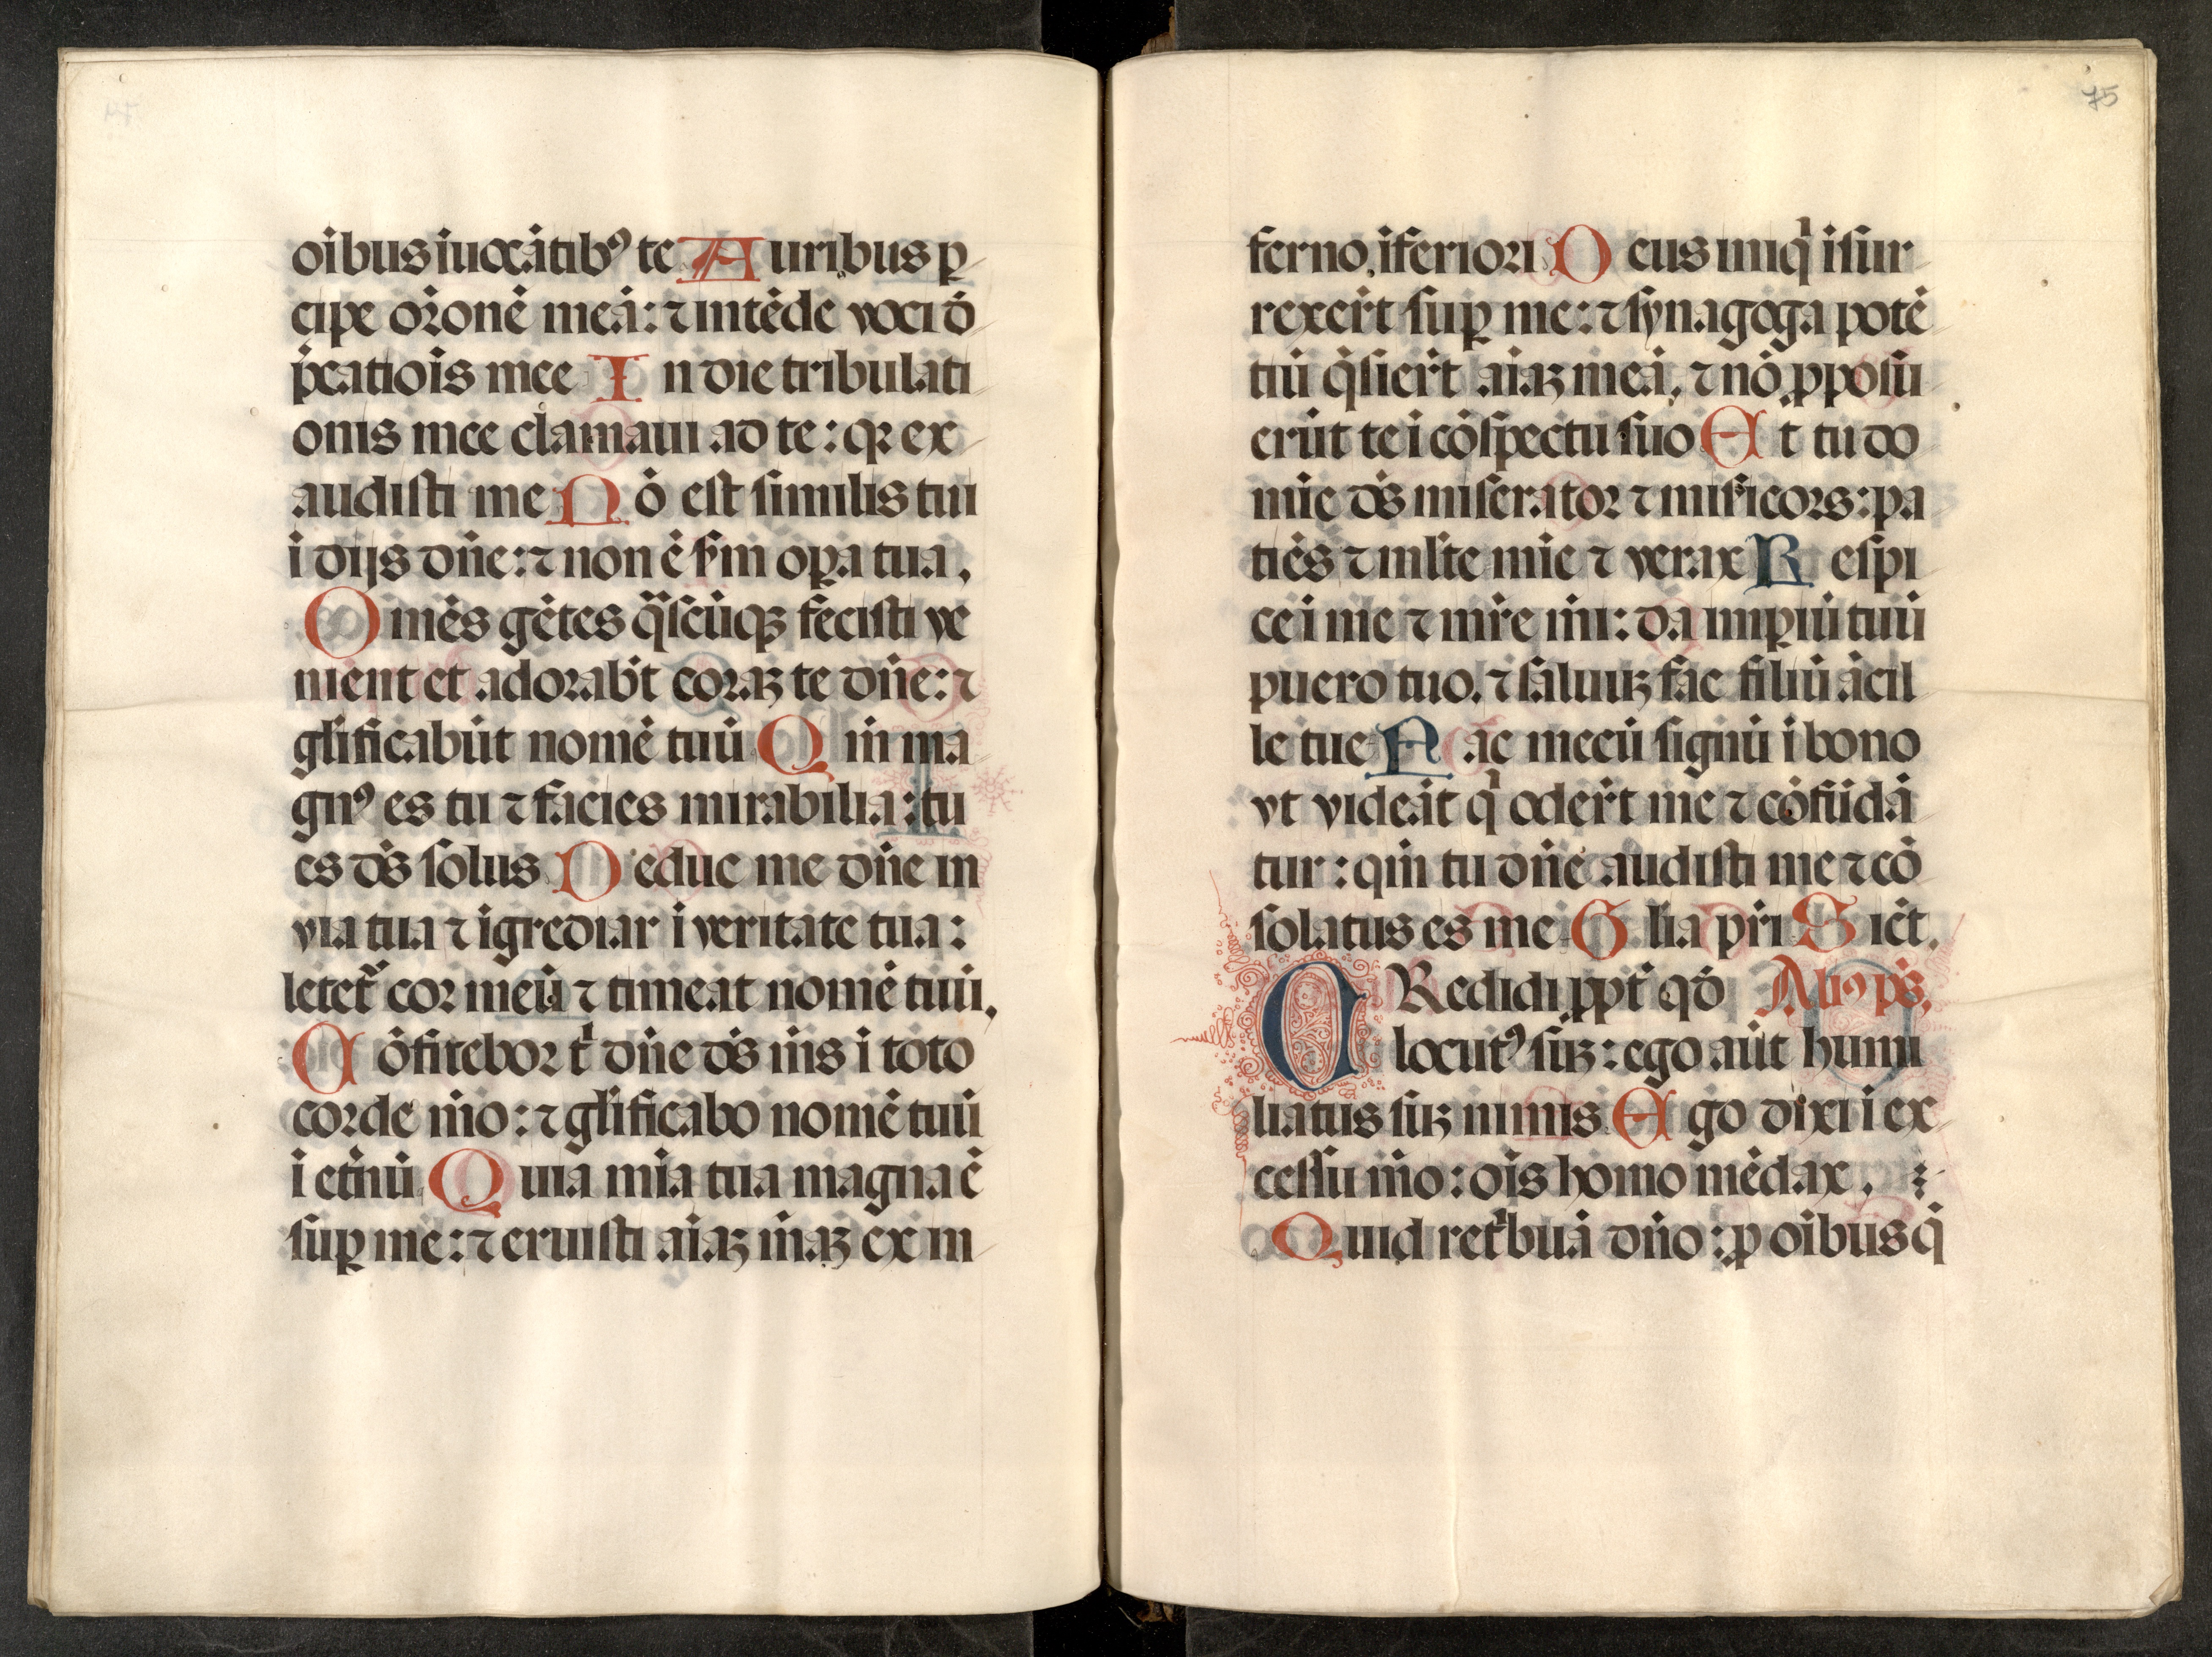 oibus iuocātibꝰ te Auribus ꝑ
cipe orōnē meā: ⁊ intēde voci d̄
p̄catiōis mee In die tribulati
onis mee clamaui ad te: qꝛ ex
audisti me Nō est similis tui
i dijs dn̄e: ⁊ non ē sm̄ oꝑa tua.
Omēs gētes q̄scūqꝫ fecisti ve
nient et adorabt̄ coraꝫ te dn̄e: ⁊
glīficabūt nomē tuū Qm̄ ma
gnꝰ es tu ⁊ facies mirabilia: tu
es ds̄ solus Deduc me dn̄e in
via tua ⁊ igrediar i veritate tua:
letet᷑ cor meū ⁊ timeat nomē tuū.
Cōfitebor tⁱ dn̄e ds̄ m̄s i toto
corde m̄o: ⁊ glīficabo nomē tuū
i et̄nū Quia mīa tua magna ē
suꝑ me: ⁊ eruisti aiaꝫ m̄aꝫ ex in
75
ferno iferiori Deus iniqⁱ isur
rexer̄t suꝑ me: ⁊ synagoga potē
tiū q̄sier̄t aiaꝫ meā, ⁊ nō ꝓposu
erūt te i cōspectu suo Et tu do
mīe ds̄ miserator ⁊ misr̄icors: pa
tiēs ⁊ mlt̄e mīe ⁊ verax Respi
ce i me ⁊ mr̄e mī: da imꝑiū tuū
puero tuo. ⁊ saluuꝫ fac filiū ācil
le tue Fac mecū signū i bono
vt videāt qⁱ oder̄t me ⁊ cōfūdā
tur: qm̄ tu dn̄e audisti me ⁊ cō
solatus es me Glīa pr̄i Sict̄.
CRedidi ꝓpt̄ qd̄ Aliꝰ ps̄.
locutꝰ suꝫ: ego aūt humi
liatus suꝫ nimis Ego dixi i ex
cessu m̄o: ois homo mēdax.
Quid retⁱbuā dn̄o: ꝓ oibus q̄